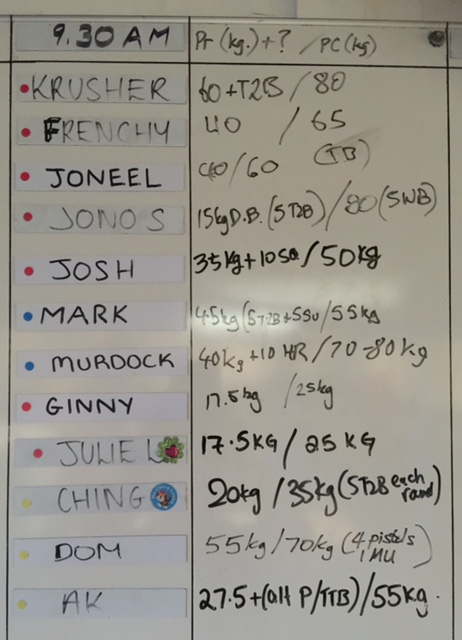 9.30 AM Pr (kg.) + ? / PC (kg)
KRUSHER 60+T2B / 80
FRENCHY 40 / 65
(TB)
JONEEL 40/60
JONO S 15kg D.B. (5 T2B) / 80 (5WB)
JOSH 35kg + 10 / 50kg
MARK 45kg (5T2B + 5SU / 55kg
MURDOCK 40kg +10 HR / 70-80kg
GINNY 17.5kg / 25kg
JULIE L 17.5KG / 25 KG
CHING 20kg / 35kg (5T2B each
DOM 55kg/70kg (4 pistols
1 MU)
AK 27.5+(alt P/TTB)/55kg.